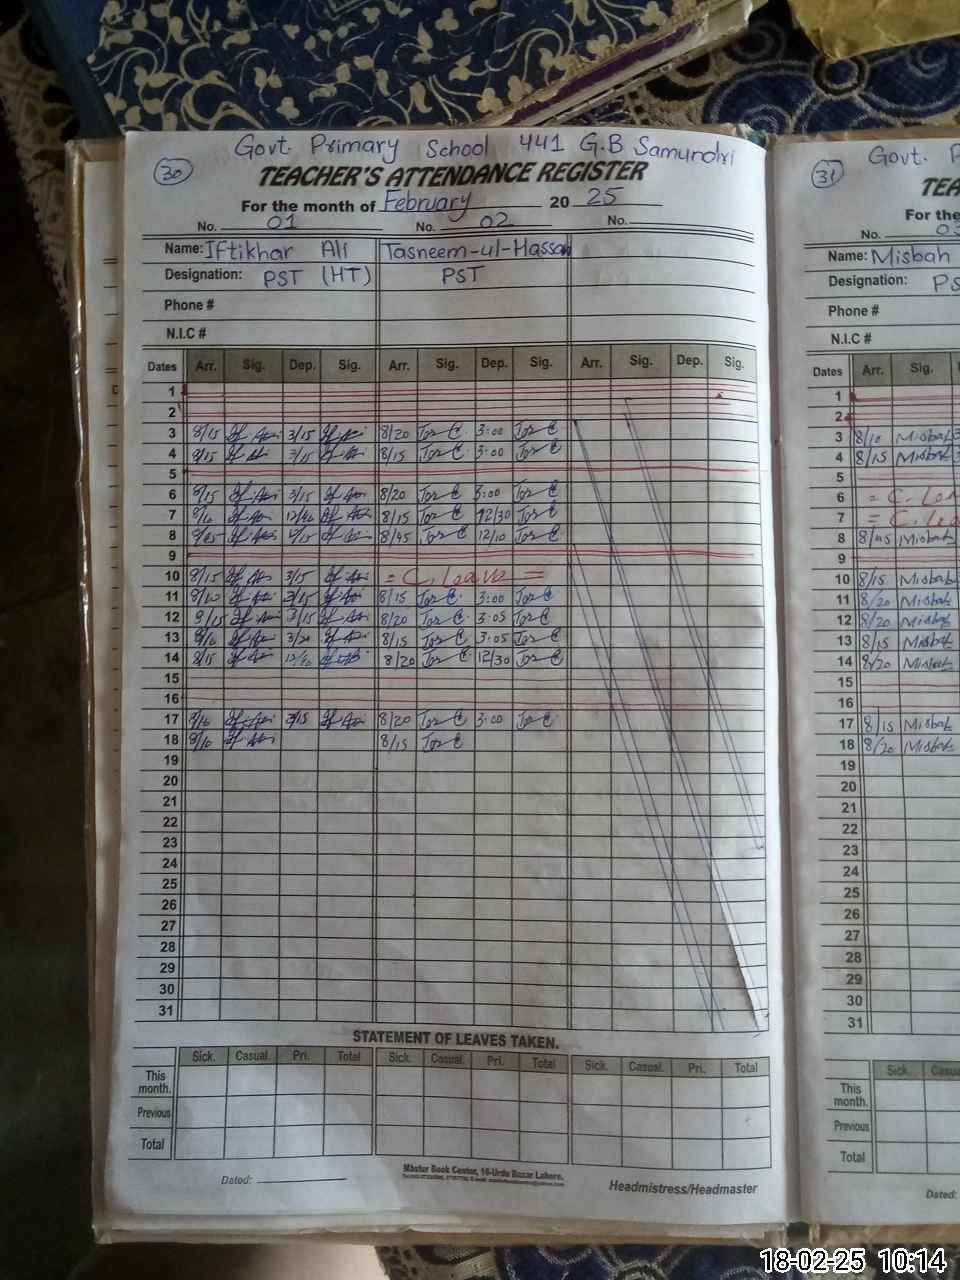 Govt. Primary School 441 G.B Samundri
30
TEACHER'S ATTENDANCE REGISTER
For the month of February 20 25
No. 01 No. 02 No.
Name: Iftikhar Ali Tasneem-ul-Hassan
Designation: PST (HT) PST
Phone #
N.I.C #
Dates Arr. Sig. Dep. Sig. Arr. Sig. Dep. Sig. Arr. Sig. Dep. Sig.
1
2
3 8/15 3/15 8/20 3:00
4 8/15 3/15 8/15 3:00
5
6 8/15 3/15 8/20 3:00
7 8/15 12/30
8 8/45 12/10
9
10 8/15 3/15 = C. Leave =
11 8/10 3/15 8/15 3:00
12 8/15 3/15 8/20 3:05
13 8/10 3/20 8/15 3:05
14 8/15 8/20 12/30
15
16
17 8/10 3/15 8/20 3:00
18 8/10 8/15
19
20
21
22
23
24
25
26
27
28
29
30
31
STATEMENT OF LEAVES TAKEN.
Sick. Casual. Pri. Total Sick. Casual. Pri. Total Sick. Casual. Pri. Total
This month.
Previous
Total
Dated:
Master Book Center, 10-Urdu Bazar Lahore.
Headmistress/Headmaster
31
Govt.
TEA
For the
No. 03
Name: Misbah
Designation: PS
Phone #
N.I.C #
Dates Arr. Sig.
1
2
3 8/10 Misbah
4 8/15 Misbah
5
6 = C. Lea
7 = C. Lea
8 8/45 Misbah
9
10 8/15 Misbah
11 8/20 Misbah
12 8/20 Misbah
13 8/15 Misbah
14 8/20 Misbah
15
16
17 8/15 Misbah
18 8/20 Misbah
19
20
21
22
23
24
25
26
27
28
29
30
31
Sick. Casua
This month.
Previous
Total
Dated:
18-02-25 10:14